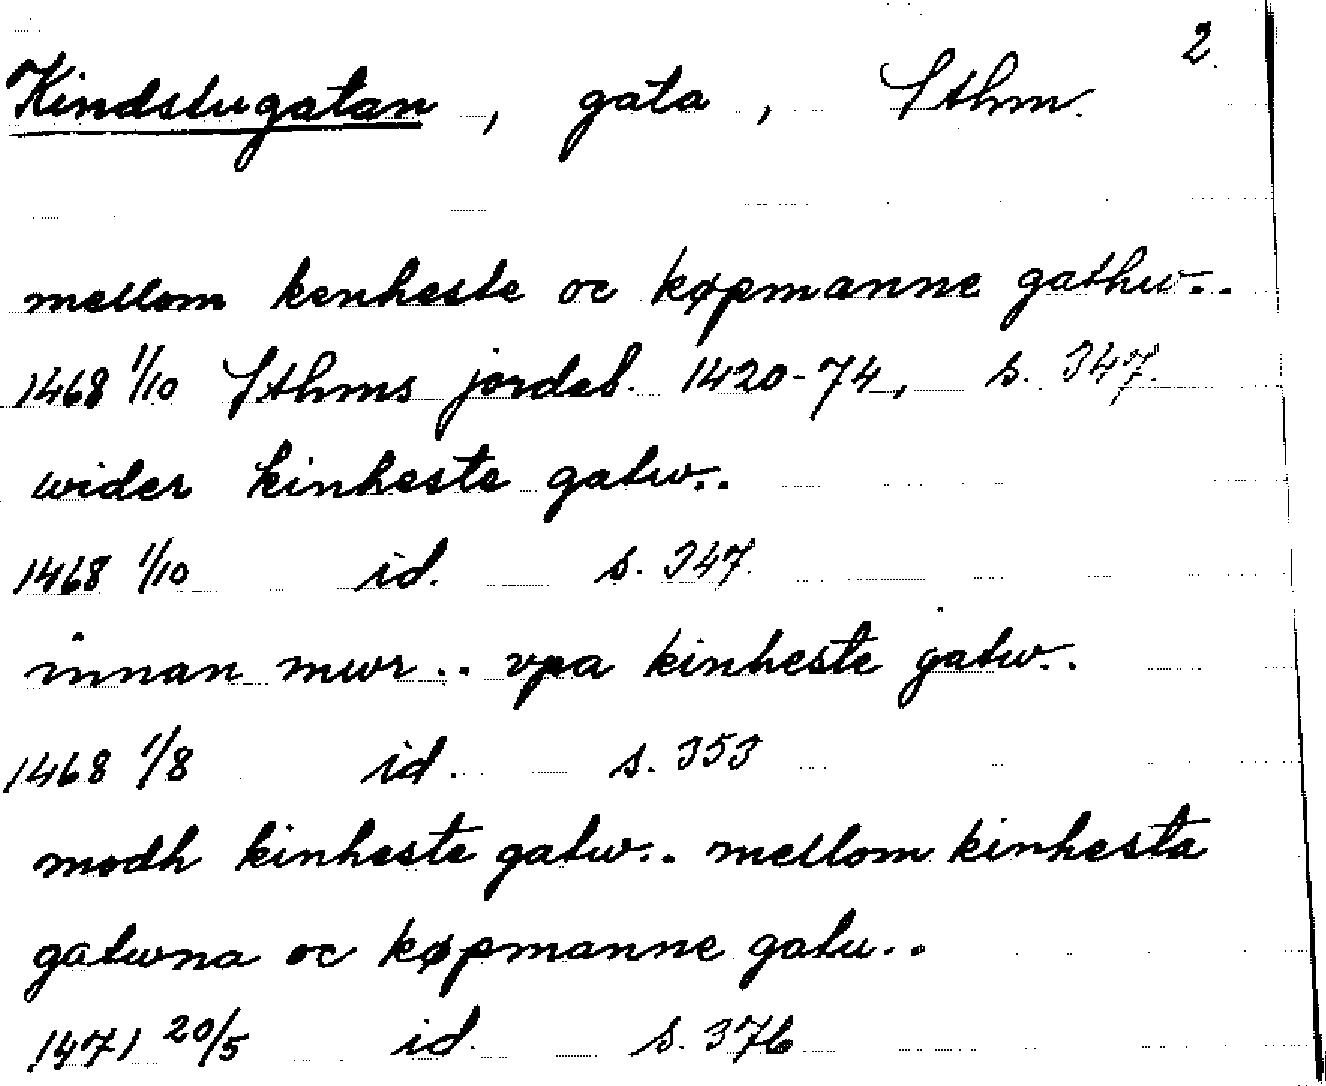 2.
Kindstugatan, gata, Sthm.
mellom kenheste oc køpmanne gathw..
1468 1/10 Sthms jordeb. 1420-74, s. 347.
wider kinheste gatw..
1468 1/10 id. s. 347.
innan mwr.. vpa kinheste gatw..
1468 1/8 id. s. 353
modh kinheste gatw.. mellom kinhesta
gatwna oc køpmanne gatu..
1471 20/5 id. s. 376